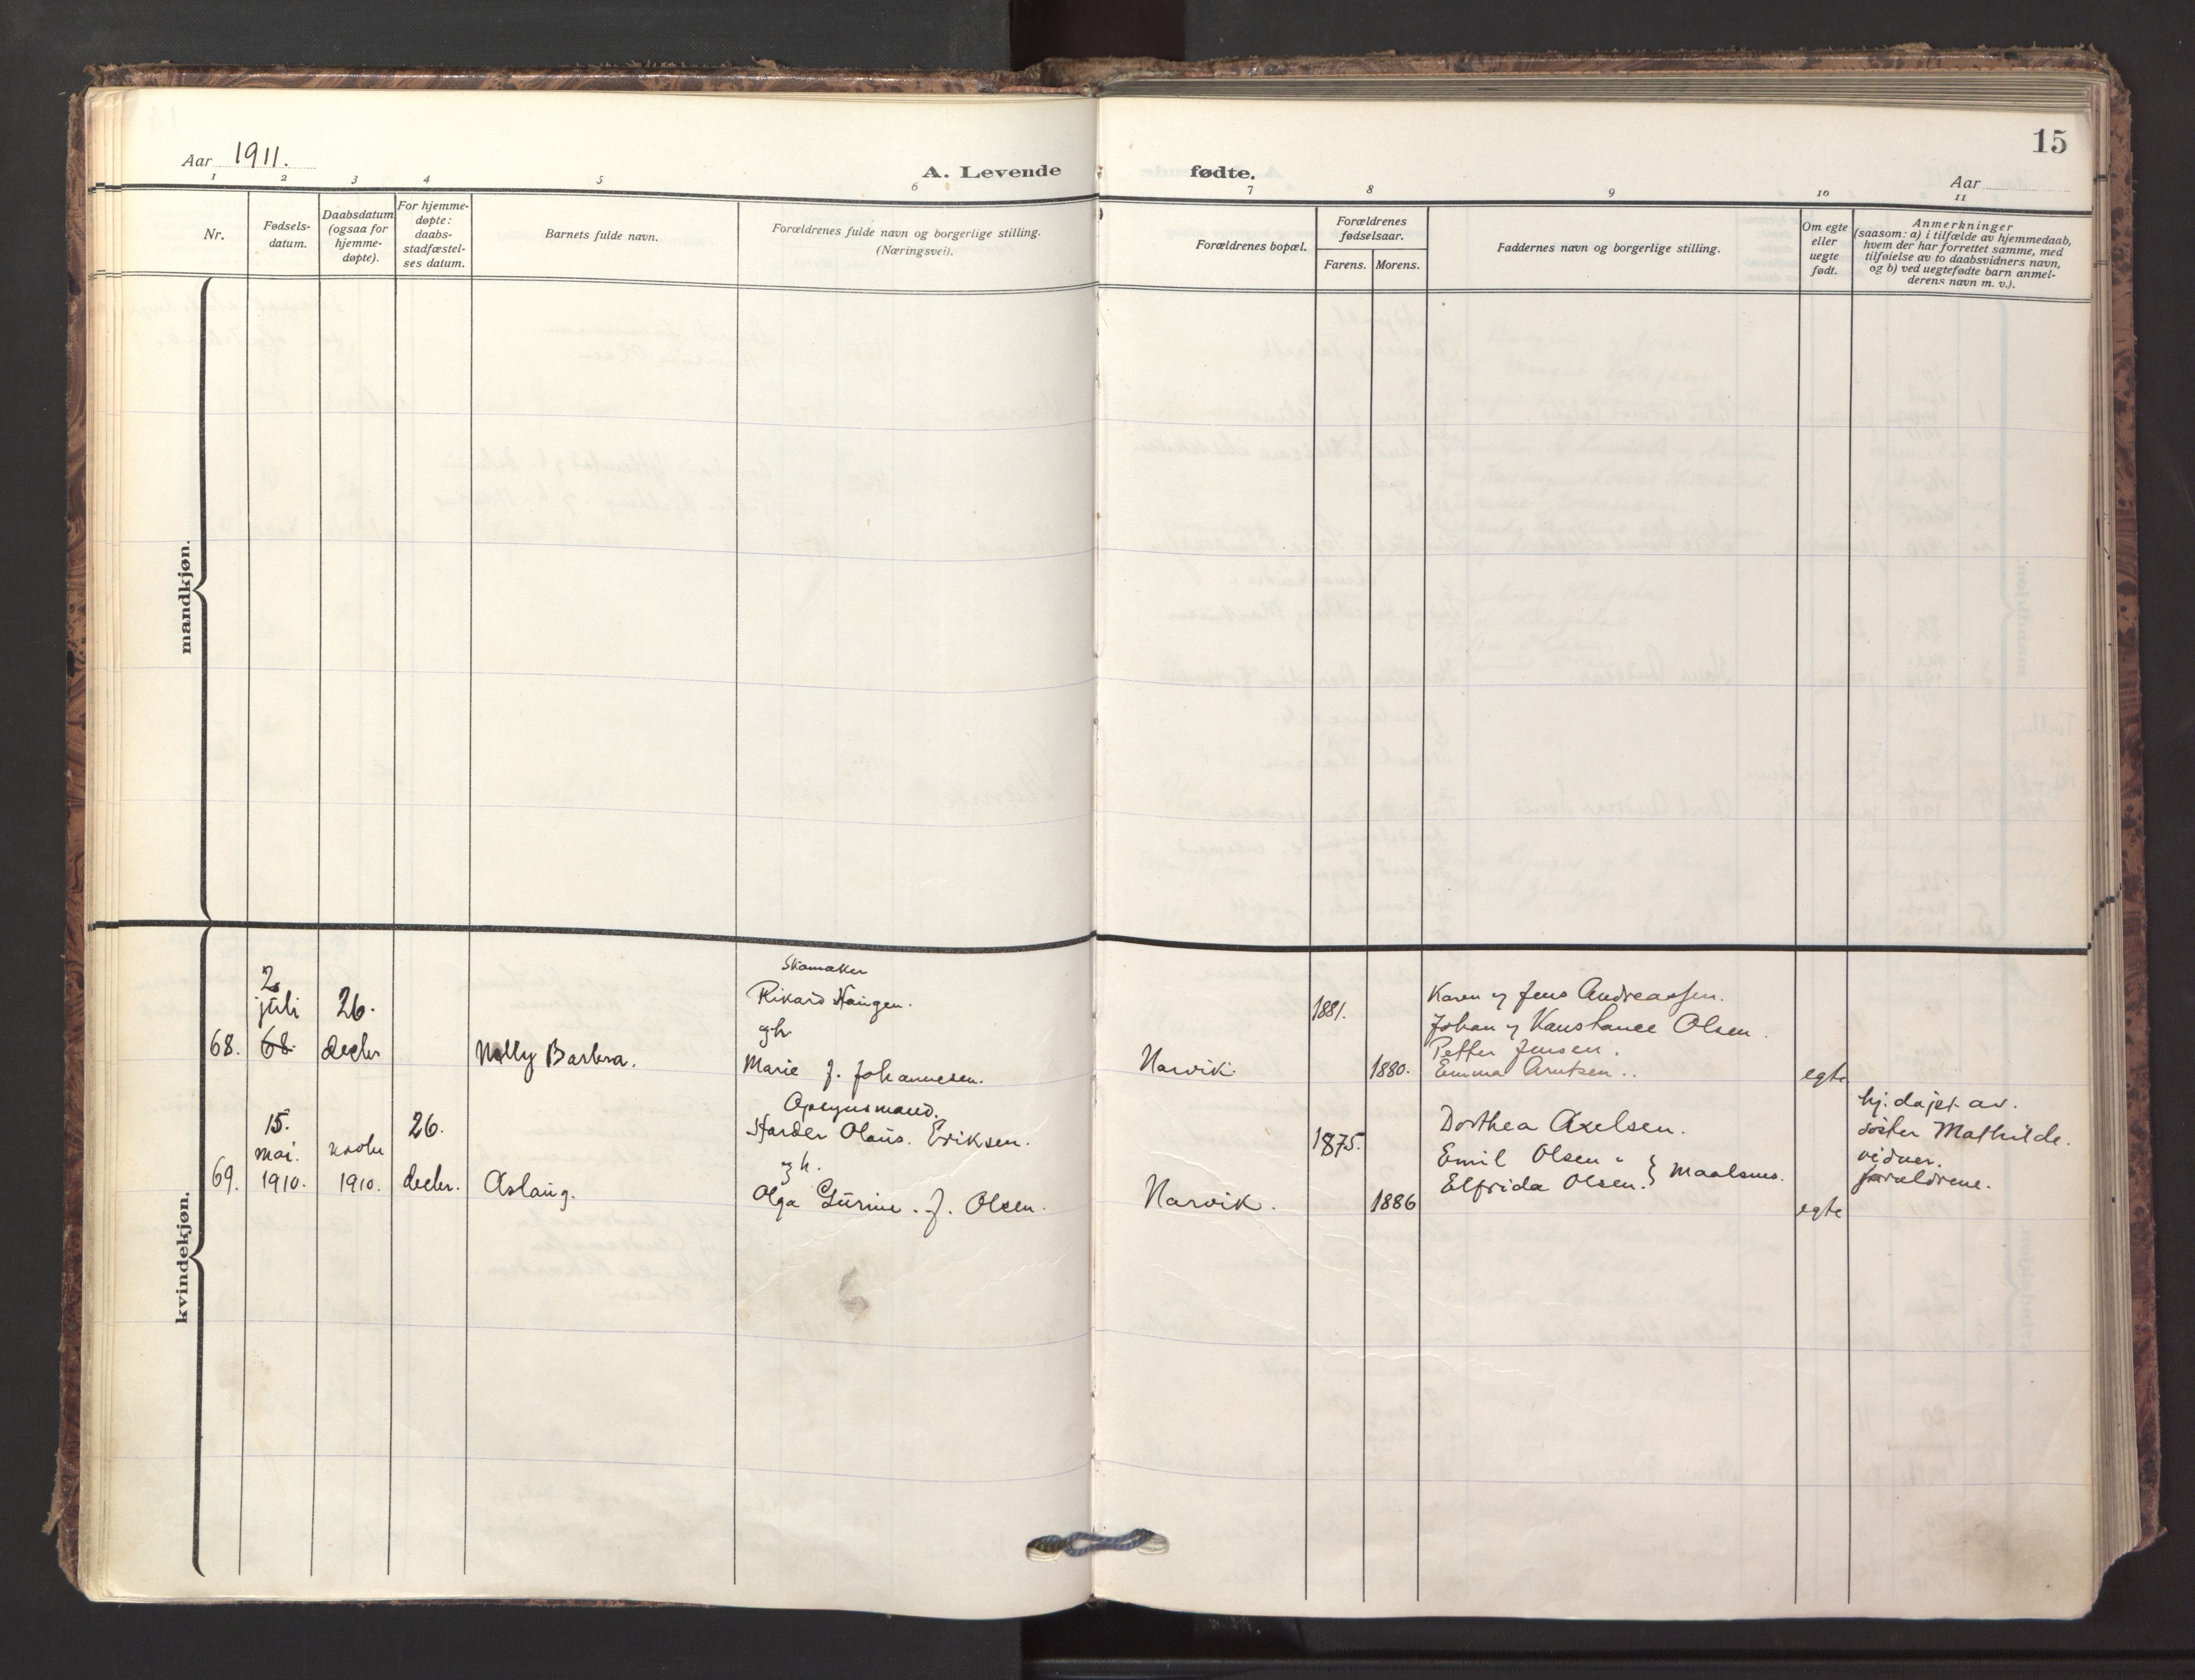 15
Aar 1911.
A. Levende fødte.
Aar
1 2 3 4 5 6 7 8 9 10 11
Nr.
Fødsels-
datum.
Daabsdatum
(ogsaa for
hjemme-
døpte).
For hjemme-
døpte:
daabs-
stadfæstel-
ses datum.
Barnets fulde navn.
Forældrenes fulde navn og borgerlige stilling.
(Næringsvei).
Forældrenes bopæl.
Forældrenes
fødselsaar.
Farens. Morens.
Faddernes navn og borgerlige stilling.
Om egte
eller
uegte
født.
Anmerkninger
(saasom: a) i tilfælde av hjemmedaab,
hvem der har forrettet samme, med
tilføielse av to daabsvidners navn,
og b) ved uegtefødte barn anmel-
derens navn m. v.).
mandkjøn.
kvindekjøn.
68.
2
juli
68.
26.
decbr
Nelly Barbra.
Skomaker
Rikard Haugen.
og h.
Marie f. Johannesen.
Narvik.
1881.
1880.
Karen og Jens Andreassen.
Johan og Konstance Olsen.
Petter Jensen.
Emma Arntsen..
egte
69.
15.
mai.
1910.
novbr
1910.
26.
decbr.
Aslaug.
Opsynsmand.
Harder Olaus. Eriksen.
og h.
Olga Lurine. f. Olsen.
Narvik.
1875.
1886
Dorthea Axelsen.
Emil Olsen
Elfrida Olsen. } Maalsnes.
egte
hj. døpt av.
søster Mathilde.
vidner.
forældrene.